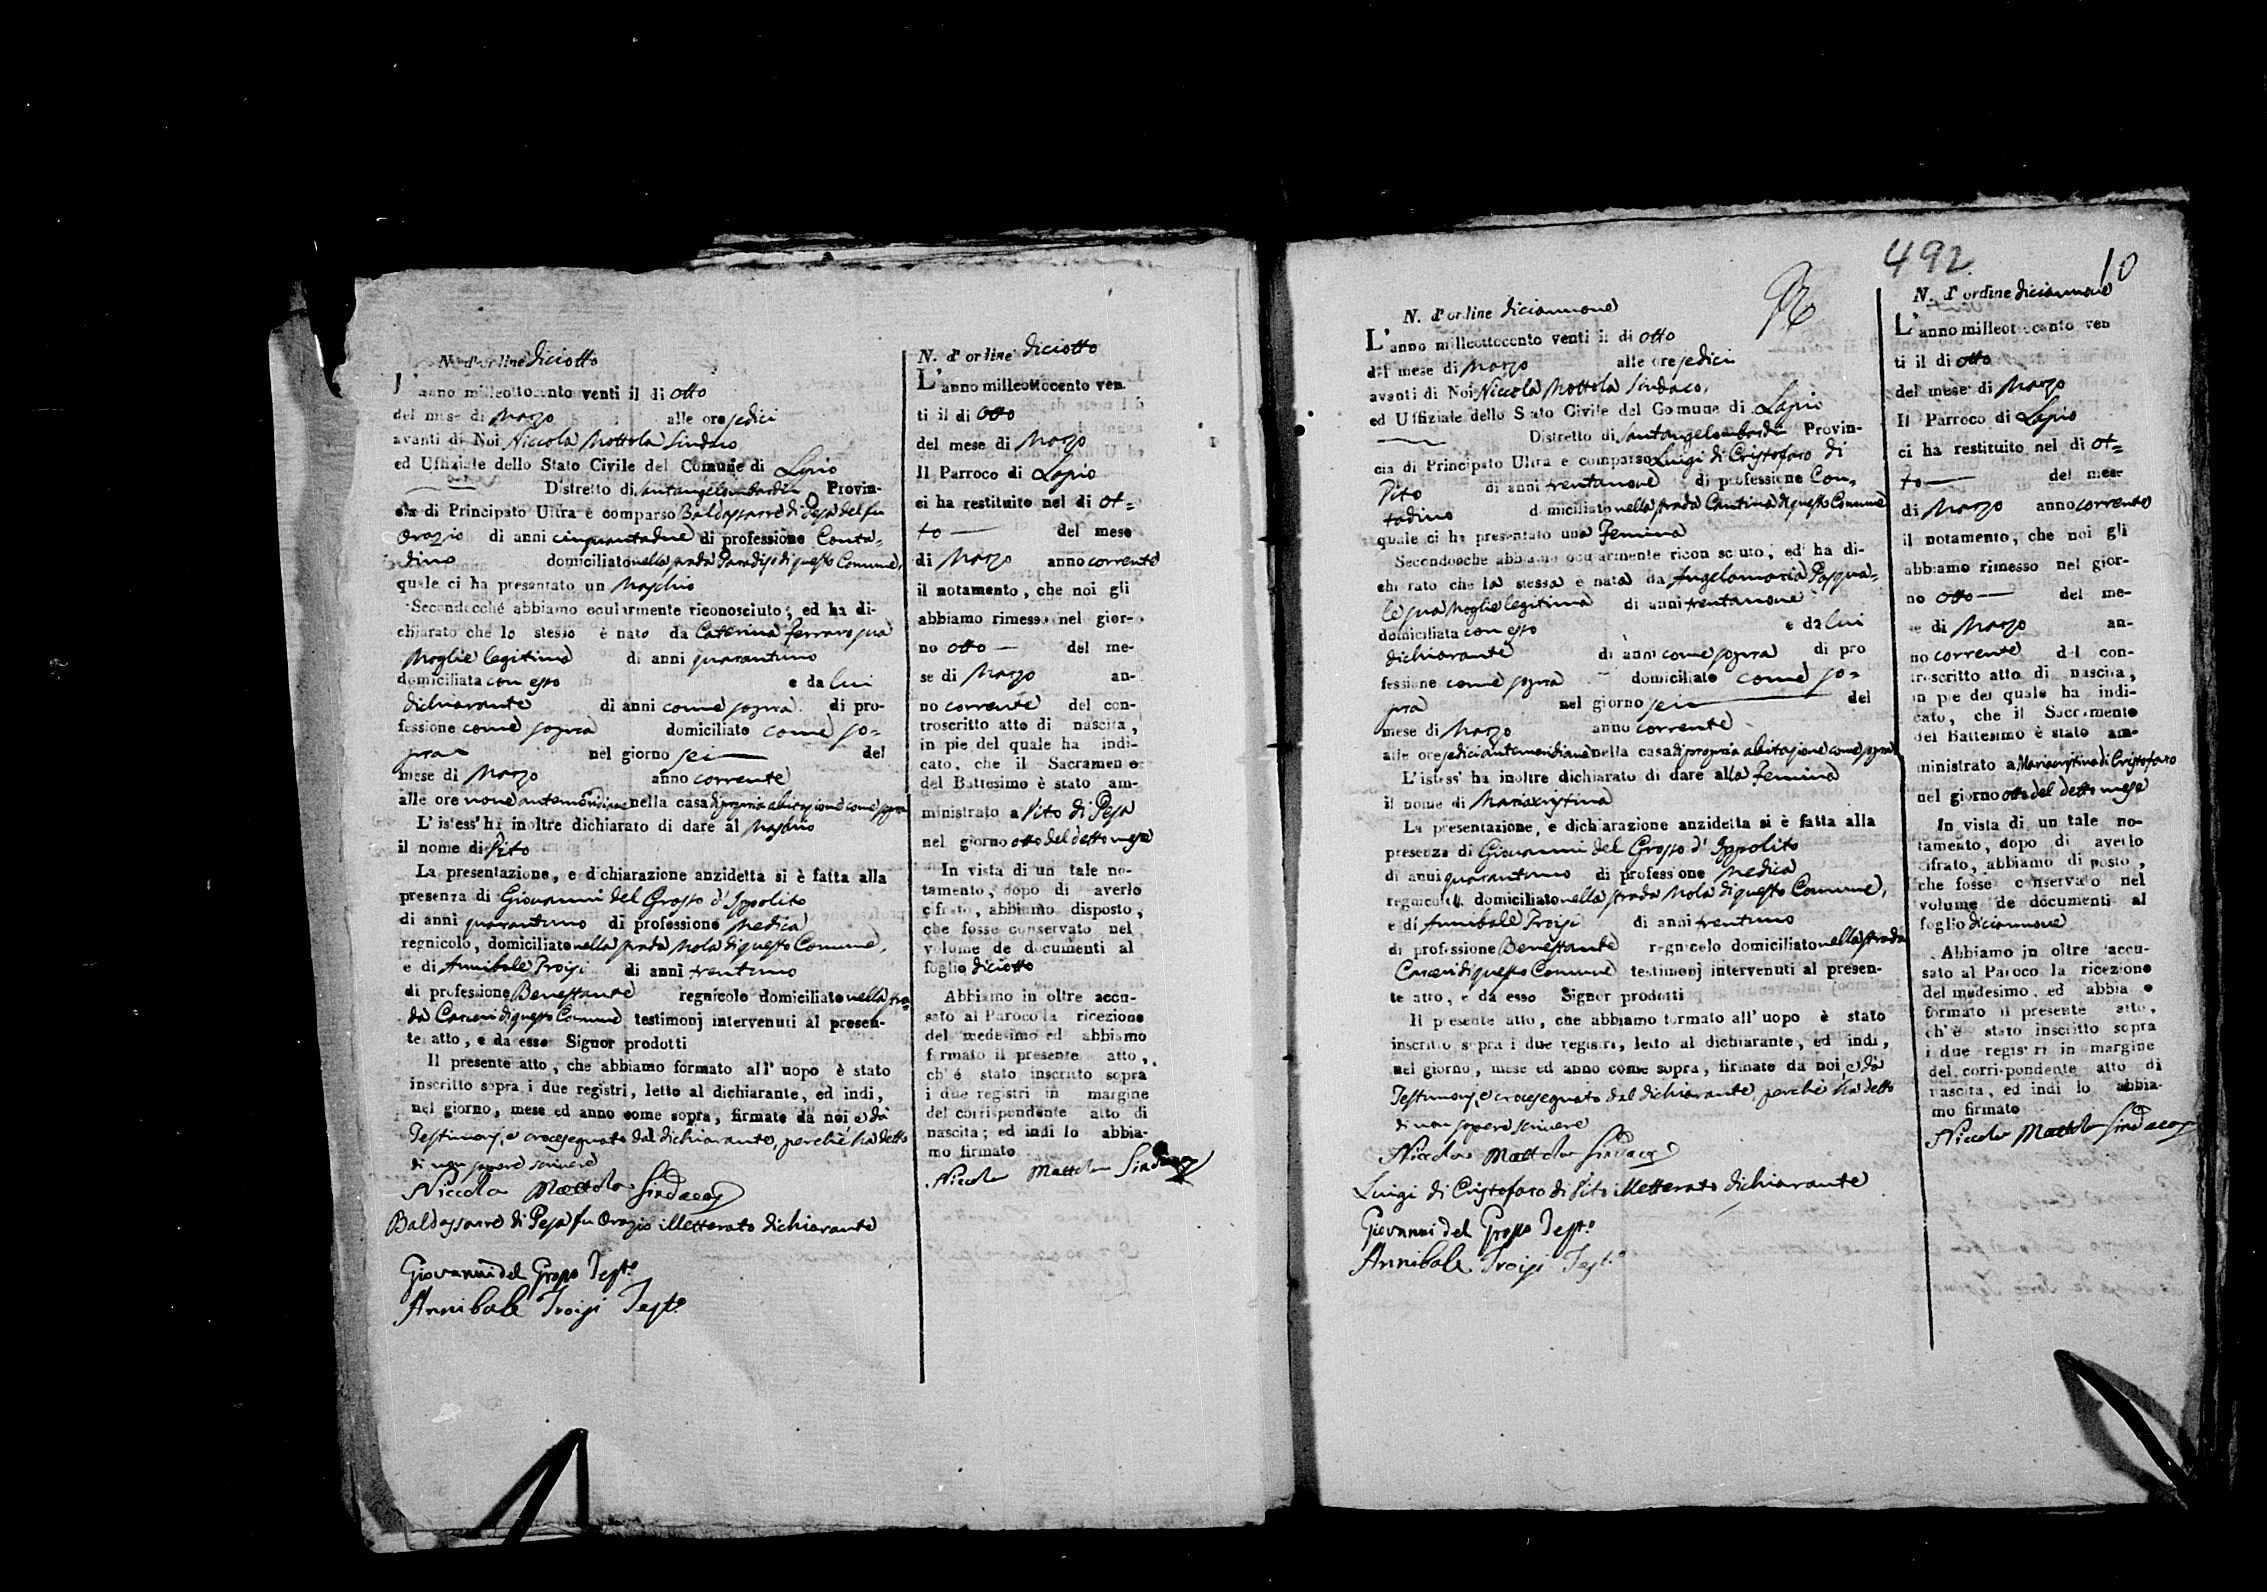 N. d'ordine diciotto
L'anno milleottocento venti il di otto
del mese di Marzo alle ore sedici
avanti di Noi Niccola Mottola Sindaco
ed Uffiziale dello Stato Civile del Comune di Lapio
Distretto di Santangelombardi Provin-
cia di Principato Ultra è comparso Baldassarre di Pesa del fu
Orazio di anni cinquantadue di professione Conta-
dino domiciliato nella strada Paradiso di questo Comune,
quale ci ha presentato un Maschio
Secondocché abbiamo ocularmente riconosciuto; ed ha di-
chiarato che lo stesso è nato da Caterina Ferraro sua
Moglie legitima di anni quarantuno
domiciliata con esso e da lui
dichiarante di anni come sopra di pro-
fessione come sopra domiciliato come so-
pra nel giorno sei del
mese di Marzo anno corrente
alle ore nove antemeridiane nella casa di propria abitazione come sopra
L'istess' ha inoltre dichiarato di dare al Maschio
il nome di Vito
La presentazione, e dichiarazione anzidetta si è fatta alla
presenza di Giovanni del Grosso d'Ippolito
di anni quarantuno di professione Medica
regnicolo, domiciliato nella strada Mola di questo Comune,
e di Annibale Troisi di anni trentuno
di professione Benestante regnicolo domiciliato nella stra-
da Carceri di questo Comune testimonj intervenuti al presen-
te atto, e da esso Signor prodotti
Il presente atto, che abbiamo formato all' uopo è stato
inscritto sopra i due registri, letto al dichiarante, ed indi,
nel giorno, mese ed anno come sopra, firmato da noi e da
Testimonj, e crocesegnato dal dichiarante, perchè ha detto
di non sapere scrivere
Niccola Mottola Sindaco
Baldassarre di Pesa fu Orazio illetterato dichiarante
Giovanni del Grosso Testo
Annibale Troisi Testo
N. d' ordine diciotto
L'anno milleottocento ven
ti il di otto
del mese di Marzo
Il Parroco di Lapio
ci ha restituito nel di ot=
to del mese
di Marzo anno corrente
il notamento, che noi gli
abbiamo rimesso nel gior-
no otto del me-
se di Marzo an-
no corrente del con-
troscritto atto di nascita,
in pie del quale ha indi-
cato, che il Sacramento
del Battesimo è stato am-
ministrato a Vito di Pesa
nel giorno otto del detto mese
In vista di un tale no-
tamento, dopo di averlo
cifrato, abbiamo disposto,
che fosse conservato nel
volume de documenti al
foglio diciotto
Abbiamo in oltre accu-
sato al Paroco la ricezione
del medesimo ed abbiamo
formato il presente atto,
ch' é stato inscritto sopra
i due registri in margine
del corrispondente atto di
nascita; ed indi lo abbia-
mo firmato
Niccola Mottola Sindaco
492
10
N. d'ordine diciannove
L'anno milleottocento venti il di otto
del mese di Marzo alle ore sedici
avanti di Noi Niccola Mottola Sindaco,
ed Uffiziale dello Stato Civile del Comune di Lapio
Distretto di Santangelombardi Provin-
cia di Principato Ultra è comparso Luigi di Cristofaro di
Vito di anni trentanove di professione Con-
tadino domiciliato nella strada Cantina di questo Comune
quale ci ha presentato una Femina
Secondocche abbiamo ocularmente riconosciuto, ed ha di-
chiarato che la stessa è nata da Angelamaria Pasqua-
le sua Moglie legitima di anni trentanove
domiciliata con esso e da lui
dichiarante di anni come sopra di pro
fessione come sopra domiciliato come so-
pra nel giorno sei del
mese di Marzo anno corrente
alle ore sedici antemeridiane nella casa di propria abitazione come sopra
L'istess' ha inoltre dichiarato di dare alla Femina
il nome di Mariacristina
La presentazione, e dichiarazione anzidetta si è fatta alla
presenza di Giovanni del Grosso d' Ippolito
di anni quarantuno di professione Medica
regnicolo, domiciliato nella strada Mola di questo Comune,
e di Annibale Troisi di anni trentuno
di professione Benestante regnicolo domiciliato nella strada
Carceri di questo Comune testimonj intervenuti al presen-
te atto, e da esso Signor prodotti
Il presente atto, che abbiamo formato all' uopo è stato
inscritto sopra i due registri, letto al dichiarante, ed indi,
nel giorno, mese ed anno come sopra, firmate da noi e da
Testimonj, e crocesegnato dal dichiarante, perchè ha detto
di non sapere scrivere
Niccola Mottola Sindaco
Luigi di Cristofaro di Vito illetterato dichiarante
Giovanni del Grosso Testo
Annibale Troisi Testo
N. d' ordine diciannove
L'anno milleottocento ven
ti il di otto
del mese di Marzo
Il Parroco di Lapio
ci ha restituito nel di ot=
to del mese
di Marzo anno corrente
il notamento, che noi gli
abbiamo rimesso nel gior-
no otto del me-
se di Marzo an-
no corrente del con-
troscritto atto di nascita,
in pie del quale ha indi-
cato, che il Sacramento
del Battesimo è stato am-
ministrato a Mariacristina di Cristofaro
nel giorno otto del detto mese
In vista di un tale no-
tamento, dopo di averlo
cifrato, abbiamo disposto,
che fosse conservato nel
volume de documenti al
foglio diciannove
Abbiamo in oltre accu-
sato al Paroco la ricezione
del medesimo, ed abbia o
formato il presente atto,
ch'è stato inscritto sopra
i due registri in margine
del corrispondente atto di
nascita, ed indi lo abbia-
mo firmato
Niccola Mottola Sindaco